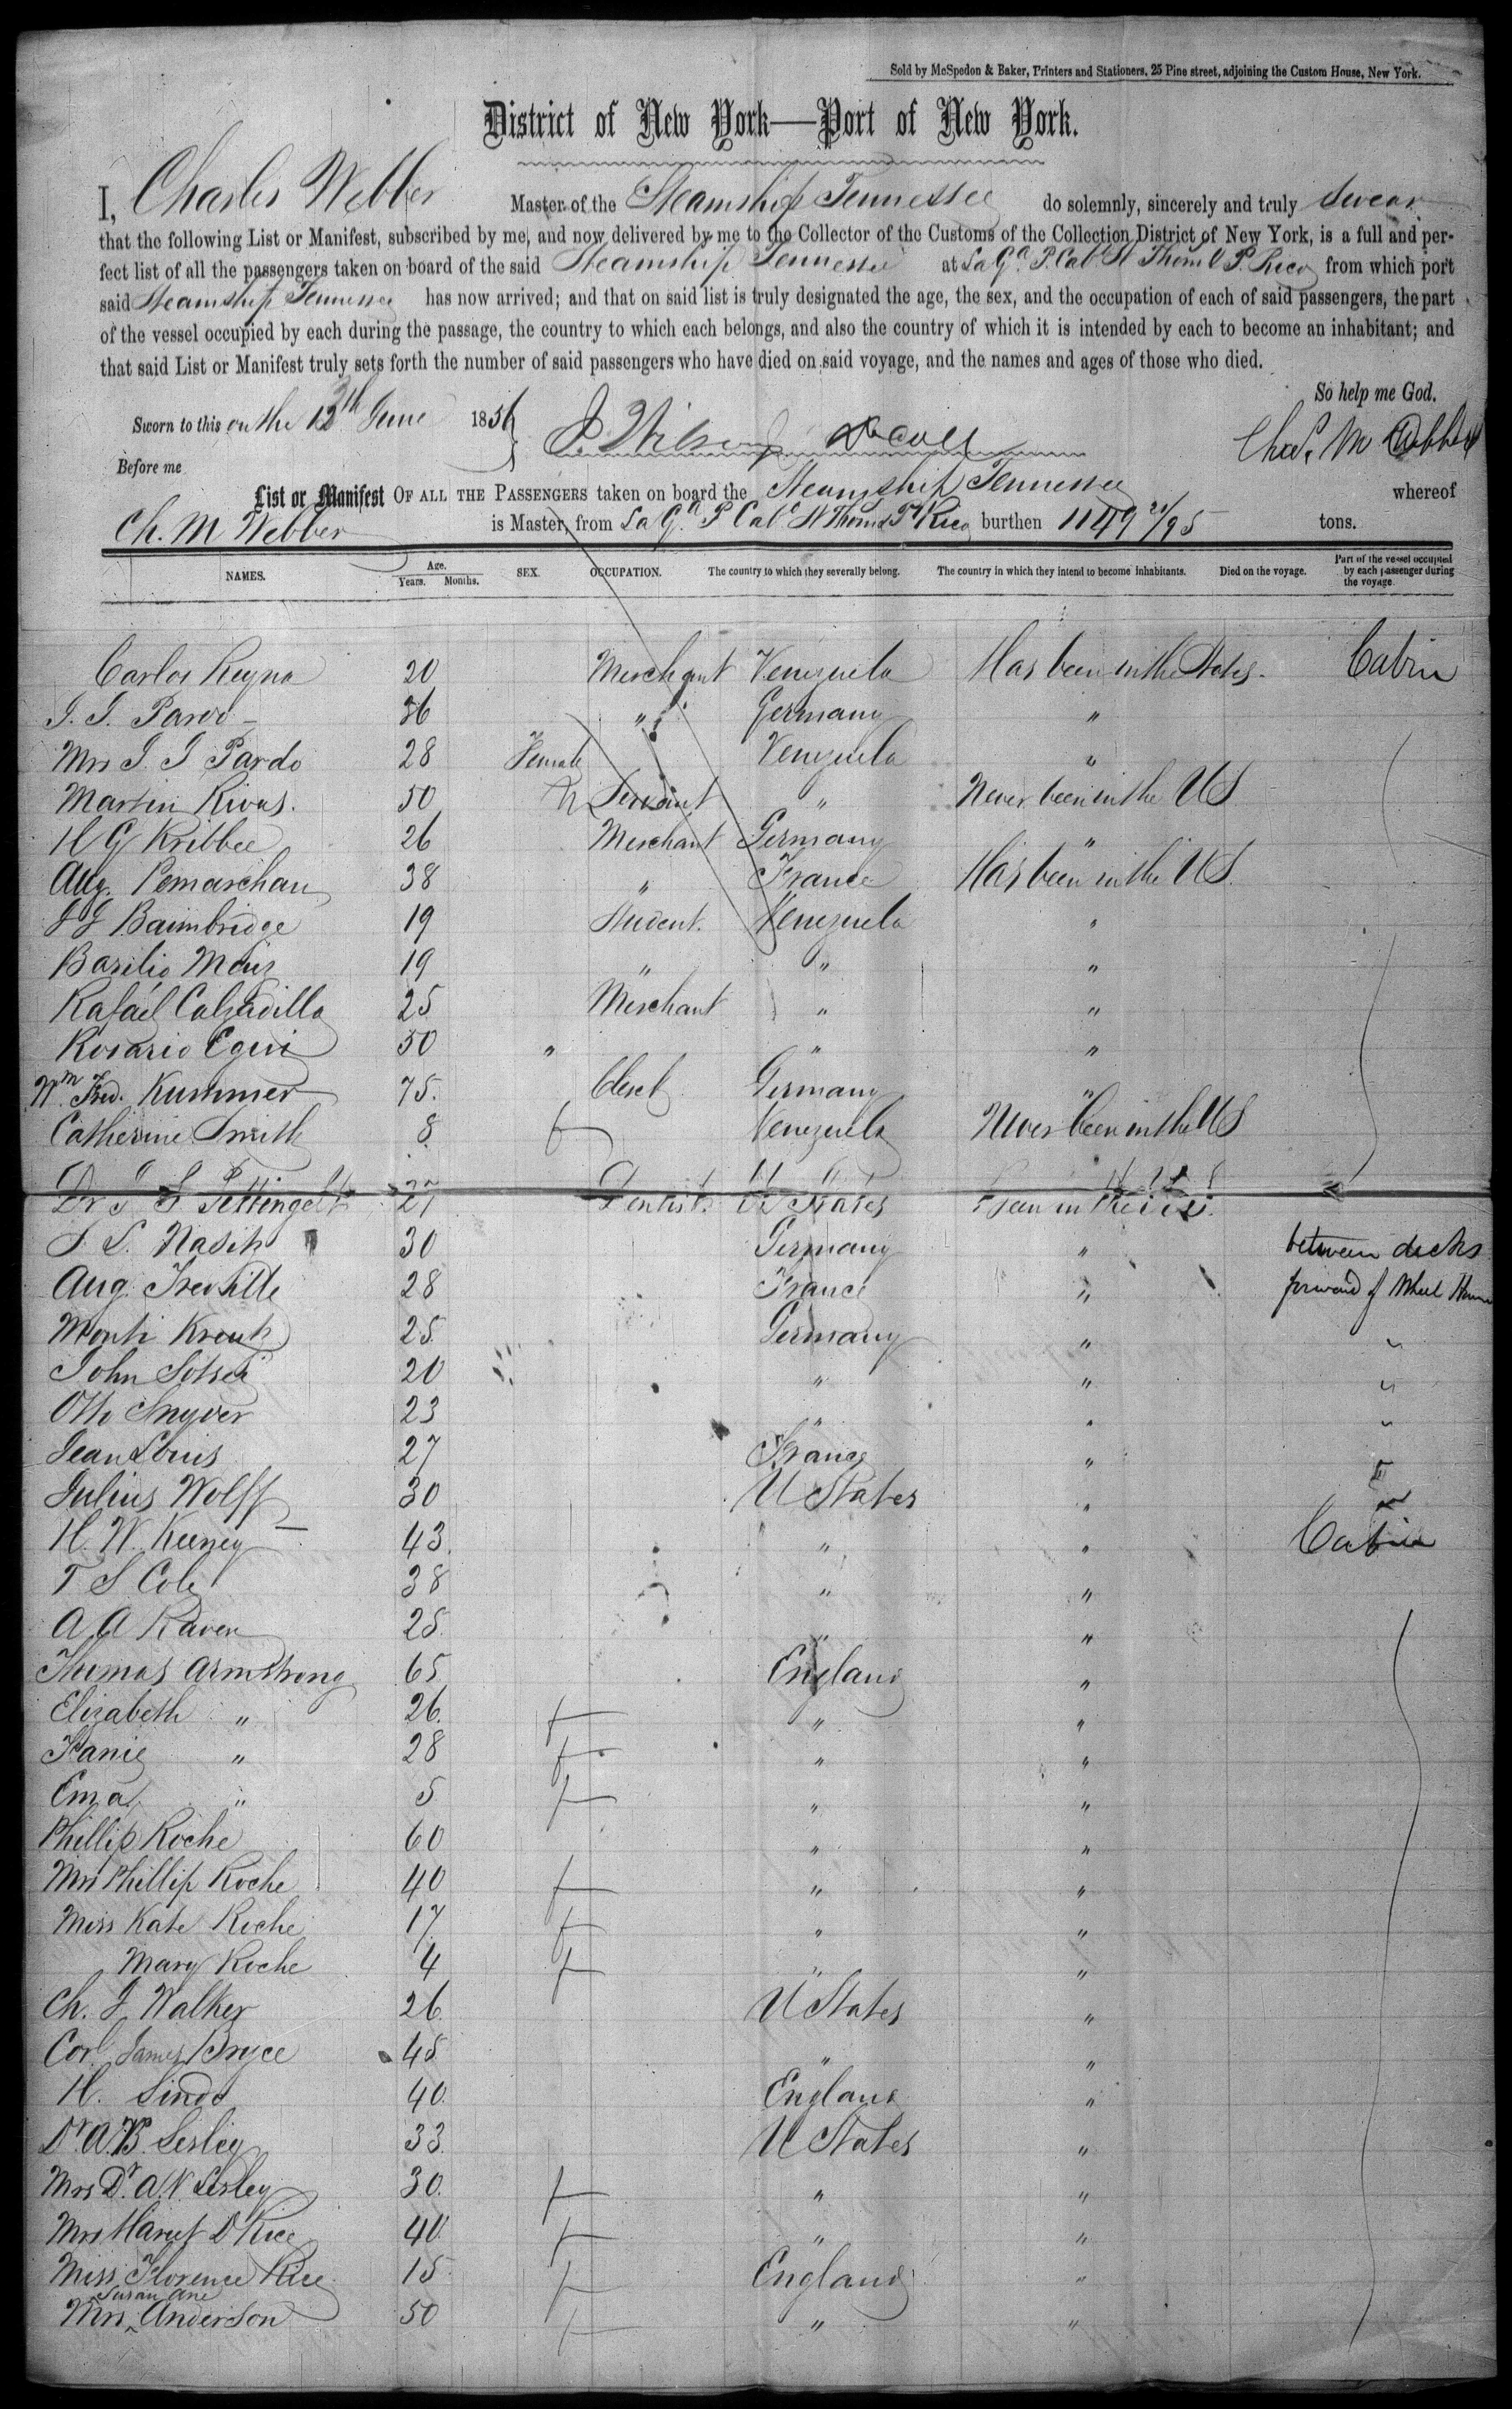 Sold by McSpedon & Baker, Printers and Stationers, 25 Pine street, adjoining the Custom House, New York.
District of New York—Port of New York.
I, Charles Webber Master of the Steamship Tennessee do solemnly, sincerely and truly swear
that the following List or Manifest, subscribed by me, and now delivered by me to the Collector of the Customs of the Collection District of New York, is a full and per-
fect list of all the passengers taken on board of the said Steamship Tennessee at La Ga. P. Cabo St Thom & P. Rico from which port
said Steamship Tennessee has now arrived; and that on said list is truly designated the age, the sex, and the occupation of each of said passengers, the part
of the vessel occupied by each during the passage, the country to which each belongs, and also the country of which it is intended by each to become an inhabitant; and
that said List or Manifest truly sets forth the number of said passengers who have died on said voyage, and the names and ages of those who died.
So help me God.
Sworn to this on the 13th June 1856
Chas. M Webber
Before me
List or Manifest OF ALL THE PASSENGERS taken on board the Steamship Tennessee whereof
Ch. M Webber is Master, from La Ga P Cabo St Thoms P Rico burthen 1149 21/95 tons.
NAMES. Age. Years. Months. SEX. OCCUPATION. The country to which they severally belong. The country in which they intend to become inhabitants. Died on the voyage. Part of the vessel occupied by each passenger during the voyage.
Carlos Reyna 20 Merchant Venezuela Has been in the States. Cabin
J. J. Pardo 36 " Germany "
Mrs J. J Pardo 28 Female Venezuela "
Martin Rivas. 50 Servant " Never been in the US
H G Kribbee 26 Merchant Germany "
Aug. Pemarchan 38 " France Has been in the US.
J J Baimbridge 19 Student. Venezuela "
Basilio Meir 19 " " "
Rafael Calzadilla 25 Merchant " "
Rosario Egui 50 " " "
Wm Fred. Kummer 75. Clerk Germany "
Catherine Smith 8 f Venezuela Never been in the US
Dr J S Pettingell 27 Dentist. U States Been in the U.S.
S. L. Nasih 30 Germany " between decks
Aug. Treville 28 France " forward of Wheel House
Monti Kreutz 25 Germany " "
John 20 " " "
Otto Snyder 23 " " "
Jean Louis 27 France " "
Julius Wolff 30 U States "
H. W. Keeney 43. " " Cabin
T S Cole 38 " "
A A Raven 25. " "
Thomas Armstrong 65 England "
Elizabeth " 26. f " "
Fanie " 28 f " "
Ema " 5 f " "
Phillip Roche 60 " "
Mrs Phillip Roche 40 f " "
Miss Kate Roche 17. f " "
Mary Roche 4 f " "
Ch. J Walker 26. U States "
Col. James Bryce 45 " "
H. Lindo 40. England "
Dr. A. B. Lesley 33. U States "
Mrs Dr. A. V. Lesley 30. f " "
Mrs Hariet D Rice 40. f " "
Miss Florence Rice 15. f England "
Mrs Susan Ane Anderson 50 f " "